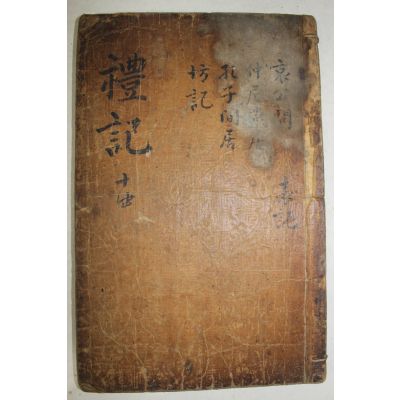 哀公問 表記
仲尼燕居
孔子間居
坊記
禮記 十